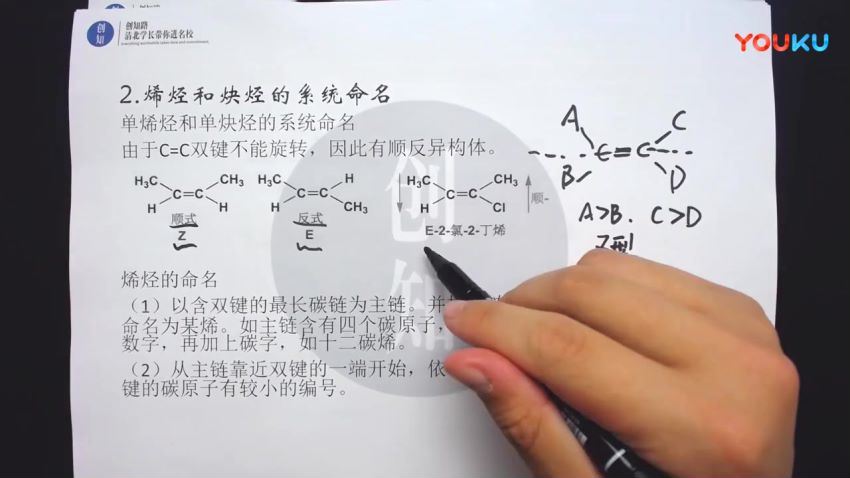 创知
创知路
清北学长带你进名校
YOUKU
2.烯烃和炔烃的系统命名
单烯烃和单炔烃的系统命名
由于C=C双键不能旋转，因此有顺反异构体。
A C
C=C
B D
H₃C CH₃ H₃C H H₃C CH₃
C=C C=C C=C
H H H CH₃ H Cl
顺-
顺式 反式
Z E
E-2-氯-2-丁烯
A>B. C>D
Z型
烯烃的命名
（1）以含双键的最长碳链为主链。并
命名为某烯。如主链含有四个碳原子，
数字，再加上碳字，如十二碳烯。
（2）从主链靠近双键的一端开始，依
键的碳原子有较小的编号。
创知